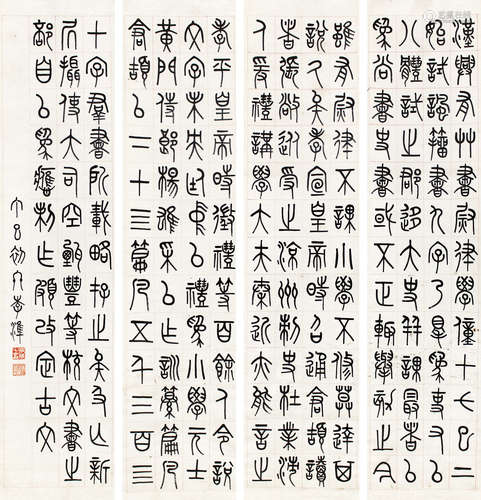 漢興有艸書尉律學僮十七已上
始試諷籀書九字乃得爲史又以
八體試之郡移太史并課最者以
爲尚書史書或不正輒舉劾之今
雖有尉律不課小學不修莫達其
說久矣孝宣皇帝時召通倉頡讀
者張敞從受之涼州刺史杜業沛
人爰禮講學大夫秦近亦能言之
孝平皇帝時徵禮等百餘人令說
文字未央廷中以禮爲小學元士
黃門侍郎楊雄采以作訓纂篇凡
倉頡以下十四篇凡五千三百四
十字羣書所載略存之矣及亡新
居攝使大司空甄豐等校文書之
部自以爲應制作頗改定古文
李準